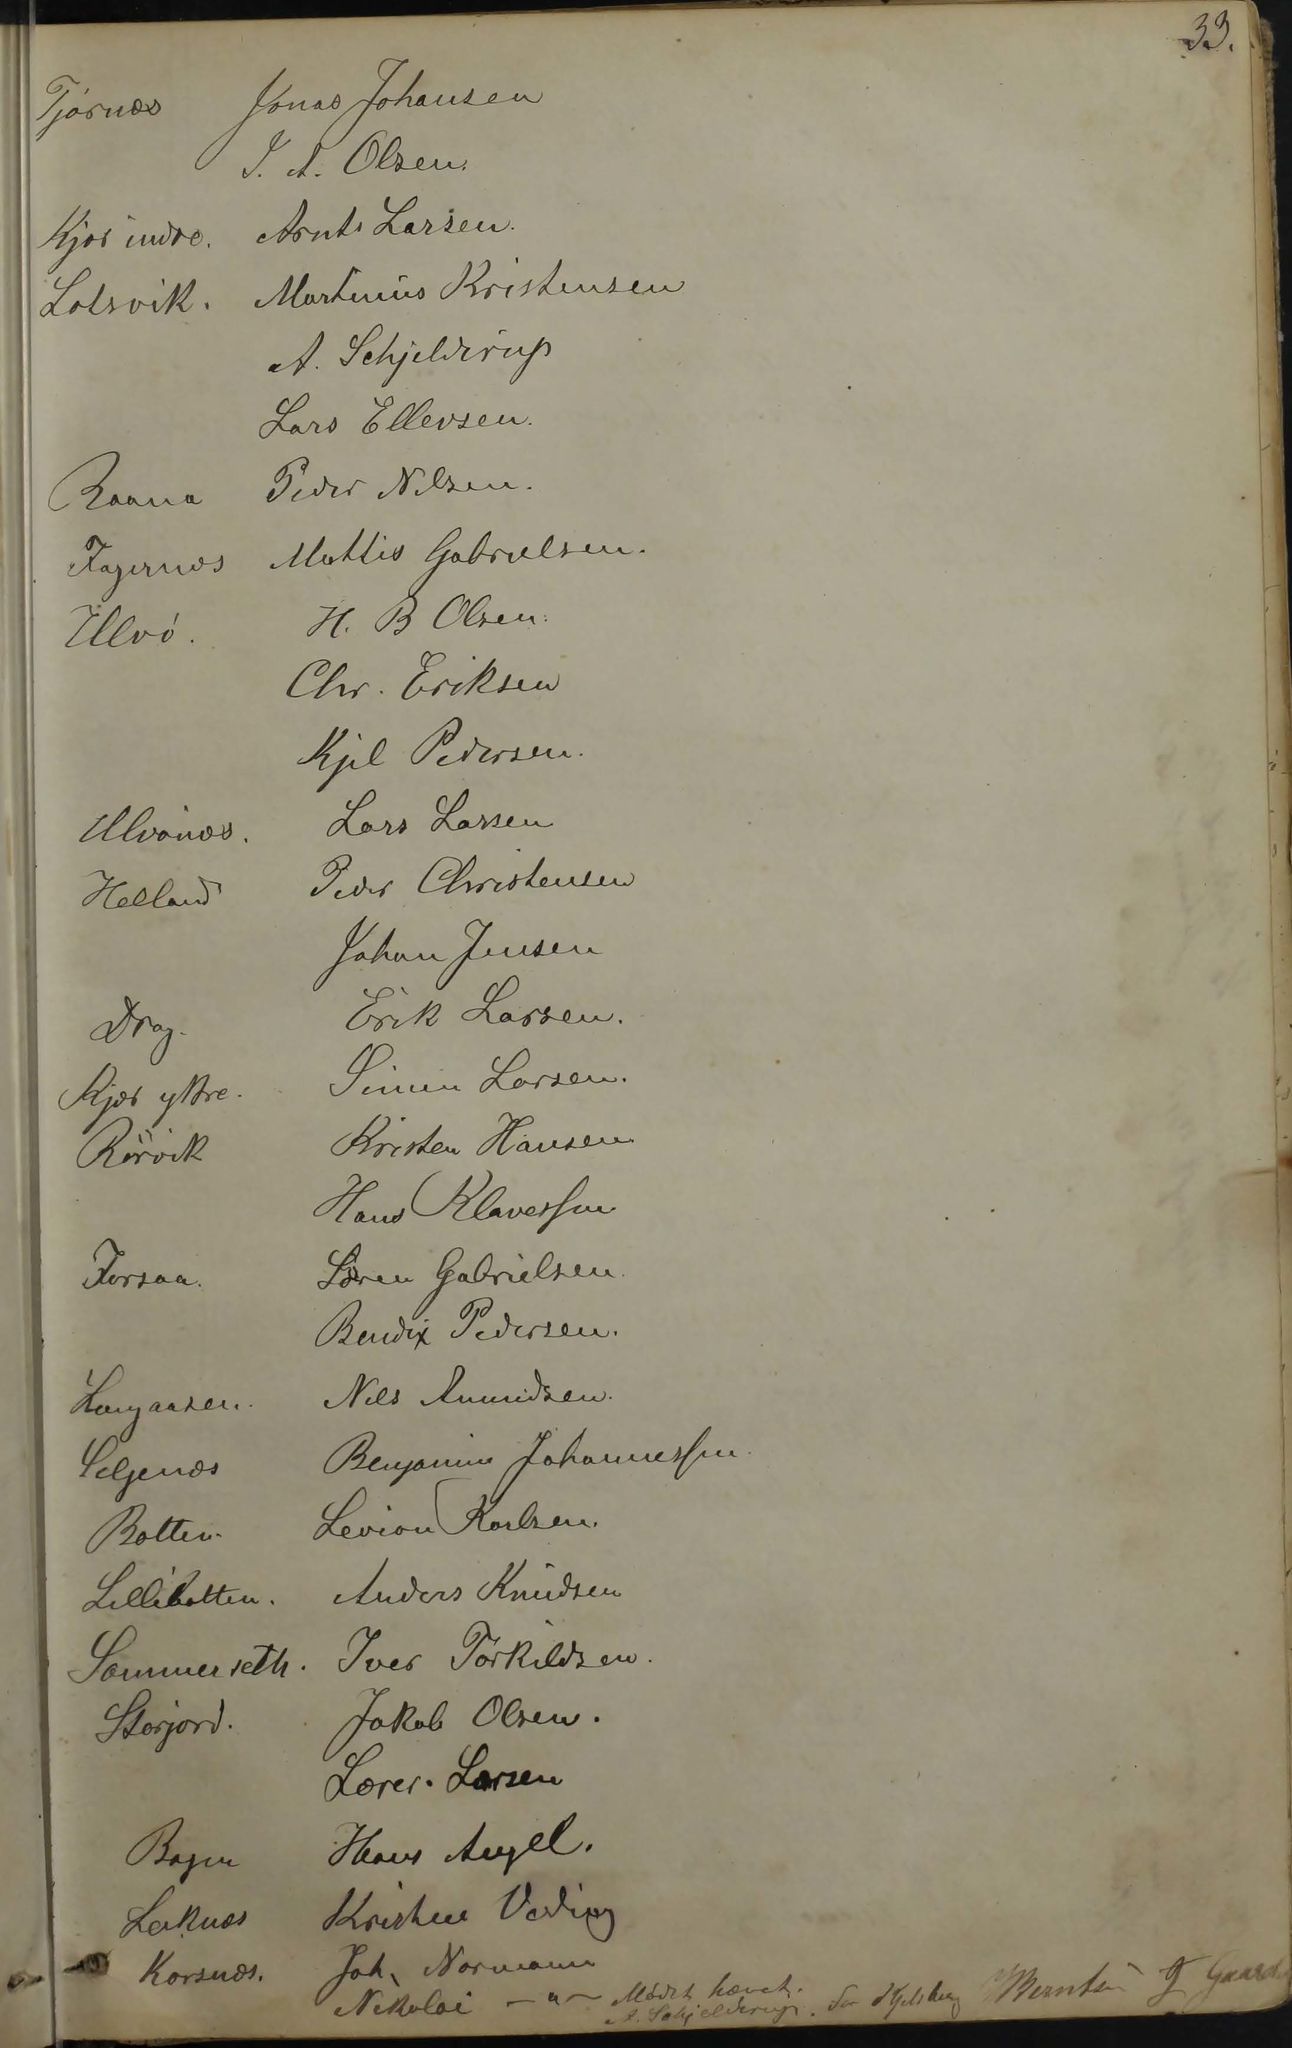 33.
Tjørnæs Jonas Johansen
I. A. Olsen.
Kjær indre. Arnt Larsen.
Lotsvik. Martinius Kristensen
A. Schjelderup
Lars Ellevsen.
Raana Peder Nilsen.
Fagernæs Mattis Gabrielsen.
Ulvø. H. B Olsen.
Chr. Eriksen
Kjel Pedersen.
Ulvönæs. Lars Larsen
Helland Peder Christensen
Johan Jensen
Drag. Erik Larsen.
Kjær yttre. Simen Larsen.
Rörvik Kristen Hansen
Hans Klavessen
Forsaa. Sören Gabrielsen.
Bendix Pedersen.
Langaasen. Nils Amundsen.
Seljenæs Benjamin Johannessen.
Botten. Levion Karlsen.
Lillebotten. Anders Knudsen
Sommerseth. Iver Torkildsen.
Storjord. Jakob Olsen.
Lærer. Larsen
Bogen Hans Angel.
Leiknæs Kristen Veding
Korsnæs. Joh. Normann
Nikolai — " — Mödet hævet.
A. Schjelderup. Berntsen